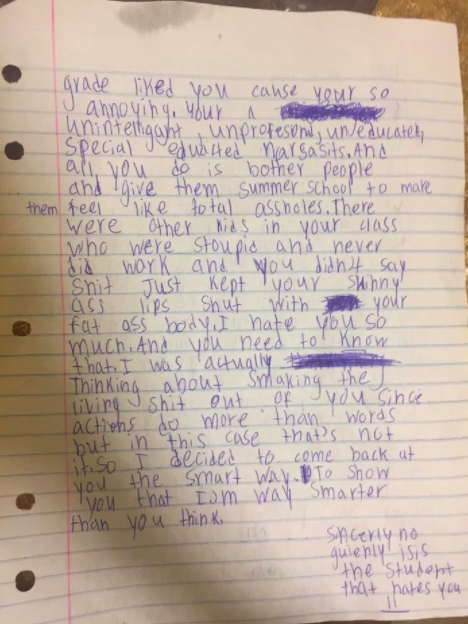 grade liked you cause your so
annoying. Your a
unintelligant, unprofesonl, un/educated,
special equatted narsasits. And
all you do is bother people
and give them summer school to make
them feel like total assholes. There
were other kids in your class
who were stoupid and never
did work and you didn't say
shit just kept your skinny
ass lips shut with your
fat ass body. I hate you so
much. And you need to know
that, I was actually
Thinking about smaking the
living shit out of you since
actions do more than words
but in this case that's not
it. So I decided to come back at
you the smart way. To show
you that I'm way smarter
than you think.
sincerly no
the student
that hates you